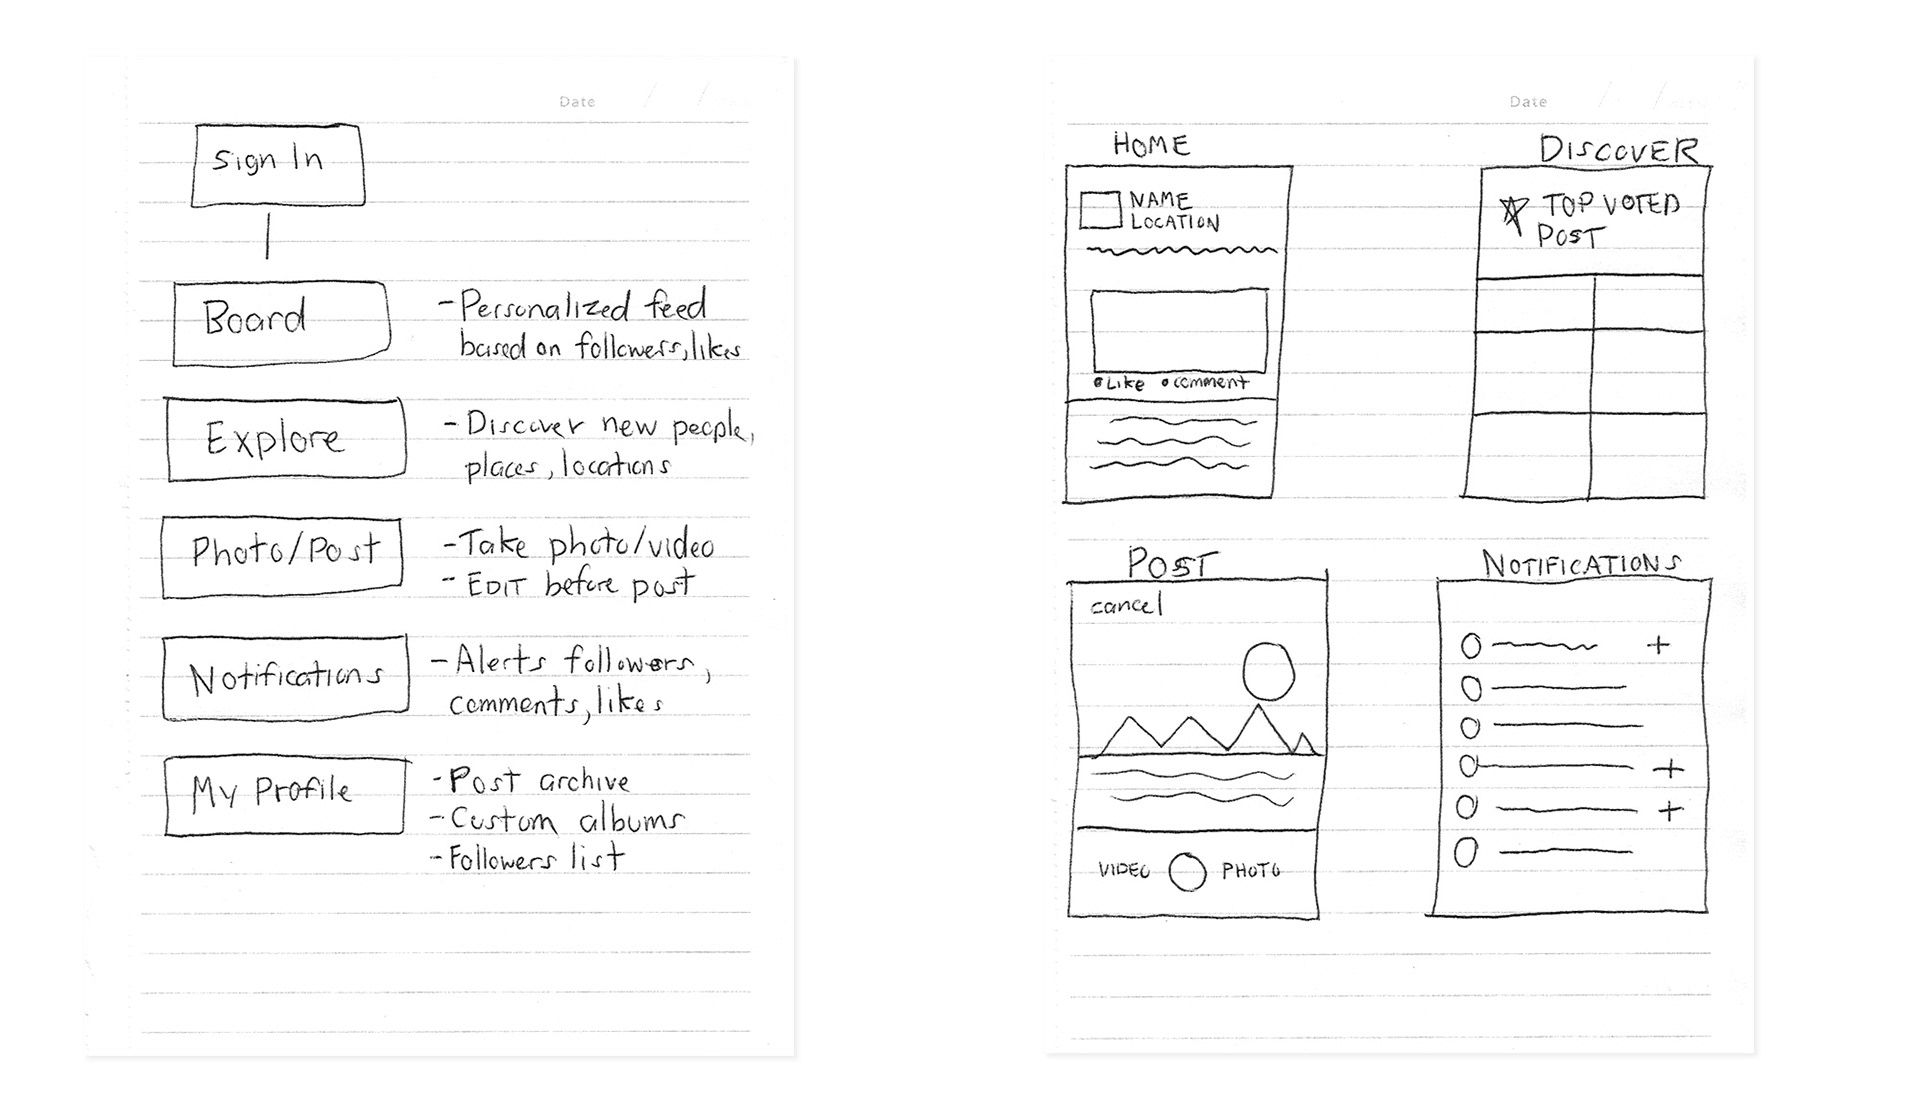 Date
Sign In
Board
-Personalized feed
based on followers, likes
Explore
-Discover new people,
places, locations
Photo/Post
-Take photo/video
-EDIT before post
Notifications
-Alerts followers,
comments, likes
My Profile
-Post archive
-Custom albums
-Followers list
Date
HOME
NAME
LOCATION
Like comment
DISCOVER
TOP VOTED
POST
POST
cancel
VIDEO PHOTO
NOTIFICATIONS